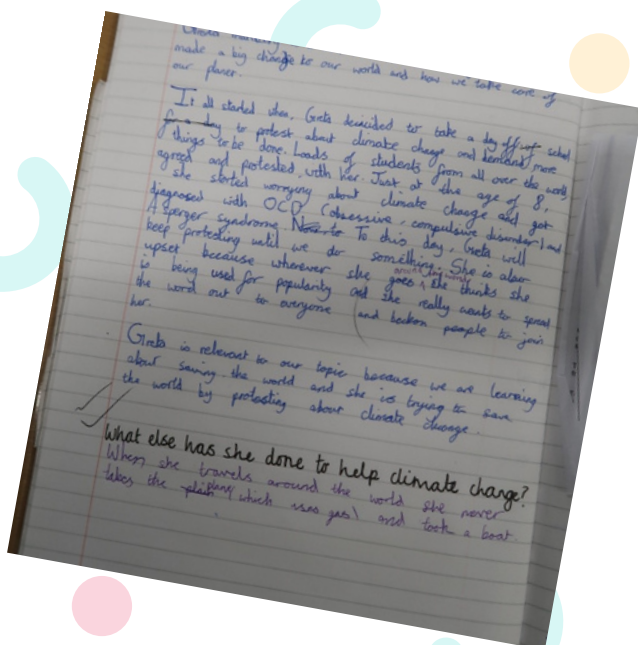 made a big change to our world and how we take care of
our planet.
It all started when, Greta decicded to take a day off of school
for a day to protest about climate change and demand more
things to be done. Loads of students from all over the world
agreed and protested with her. Just at the age of 8,
she started worrying about climate change and got
diagnosed with OCD (obsessive, compulsive disorder) and
Asperger syndrome. To this day, Greta will
keep protesting until we do something. She is also
upset because wherever she goes, she thinks she
is being used for popularity and she really wants to spread
the word out to everyone and beckon people to join
her.
Greta is relevant to our topic because we are learning
about saving the world and she is trying to save
the world by protesting about climate change.
What else has she done to help climate change?
When she travels around the world she never
takes the plain plane (which uses gas) and took a boat